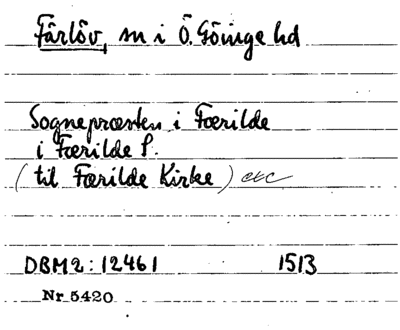 Färlöv, sn i Ö. Göinge hd
Sognepræsten i Færilde
i Færilde S.
(til Færilde Kirke) etc
DBM2: 12461 1513
Nr 5420